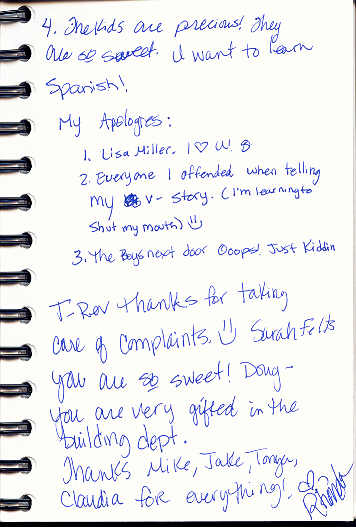 4. The Kids are precious! They
are so sweet. I want to learn
Spanish!
My Apologies:
1. Lisa Miller. I ♡ U!
2. Everyone I offended when telling
my v- story. (I'm learning to
shut my mouth) ☺
3. The Boys next door Ooops! Just Kiddin
T-Rev thanks for taking
care of Complaints. ☺ Sarah Felts
you are so sweet! Doug-
you are very gifted in the
building dept.
Thanks Mike, Jake, Tonya,
Claudia for everything! ♡
Rhonda